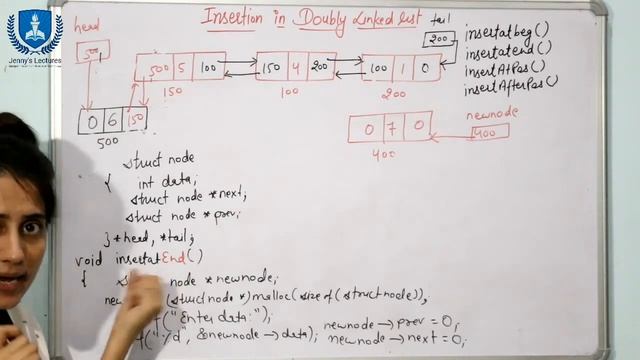 Jenny's Lectures
Insertion in Doubly Linked List
head
500
tail
200
insertatbeg()
insertatend()
insertAtPos()
insertAfterPos()
500 5 100
150
150 4 200
100
100 1 0
200
0 6 150
500
newnode
400
0 7 0
400
struct node
{ int data;
struct node *next;
struct node *prev;
} *head, *tail;
void insertatEnd()
{ node *newnode;
(struct node *) malloc(size of (struct node));
("Enter data:");
newnode → prev = 0;
&newnode → data); newnode → next = 0;